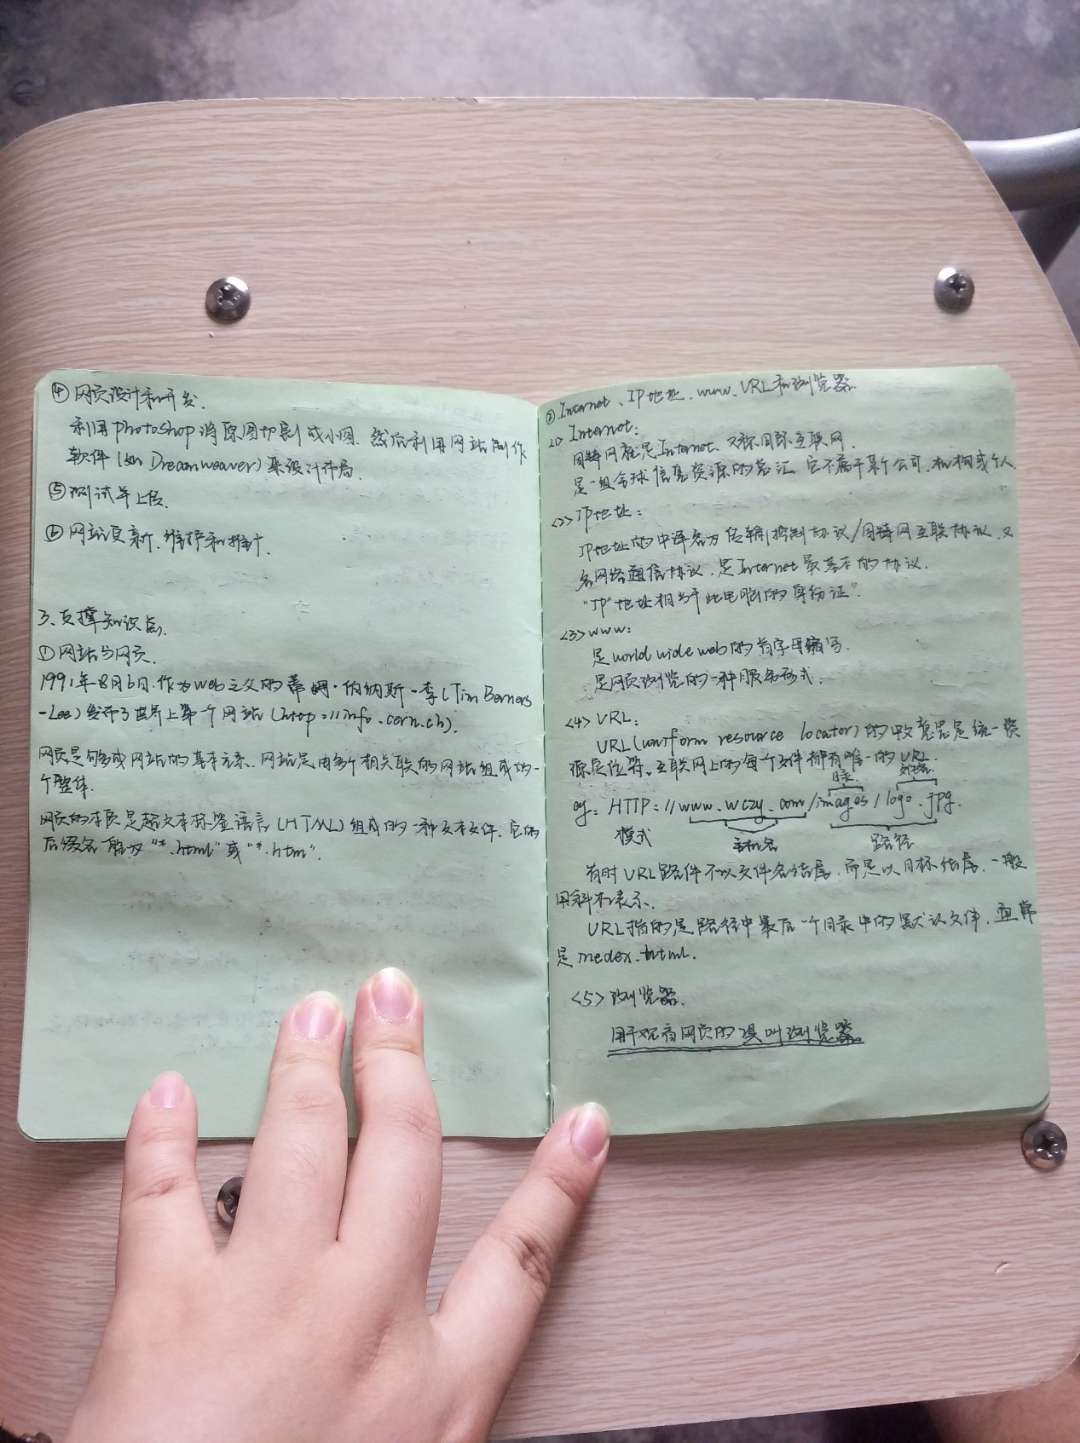 ④ 网页设计和开发.
利用photoshop将原图切割成小图. 然后利用网站制作
软件(如 Dreamweaver)来设计布局.
⑤ 测试并上传.
⑥ 网站更新. 维护和推广.
3. 支撑知识点.
① 网站与网页.
1991年8月6日.作为web之父的蒂姆·伯纳斯-李(Tim Berners
-Lee)发开了世界上第一个网站(http://info.cern.ch).
网页是构成网站的基本元素. 网站是由多个相关联的网站组成的一
个整体.
网页的本质是超文本标签语言(HTML)组成的一种文本文件. 它的
后缀名一般为"*.html"或"*.htm".
② Internet、IP地址. www. URL和浏览器.
<1> Internet:
因特网就是Internet. 又称国际互联网.
是一组全球信息资源的总汇. 它不属于某个公司. 机构或个人
<2> IP地址:
IP地址的中译名为传输控制协议/因特网互联协议. 又
名网络通信协议. 是Internet最基本的协议.
"IP"地址相当于此电脑的"身份证".
<3> www:
是world wide web的首字母缩写.
是网页浏览的一种服务形式.
<4> URL:
URL(uniform resource locator)的中文意思是统一资
源定位符. 互联网上的每个文件都有唯一的URL.
目录
eg: HTTP://www.wczy.com/images/logo.jpg.
模式 主机名 路径
有时URL路件不以文件名结尾. 而是以目标结尾. 一般
用斜杠表示.
URL指的是路径中最后一个目录中的默认文件. 通常
是inedex.html.
<5> 浏览器.
用于观看网页的误叫浏览器.